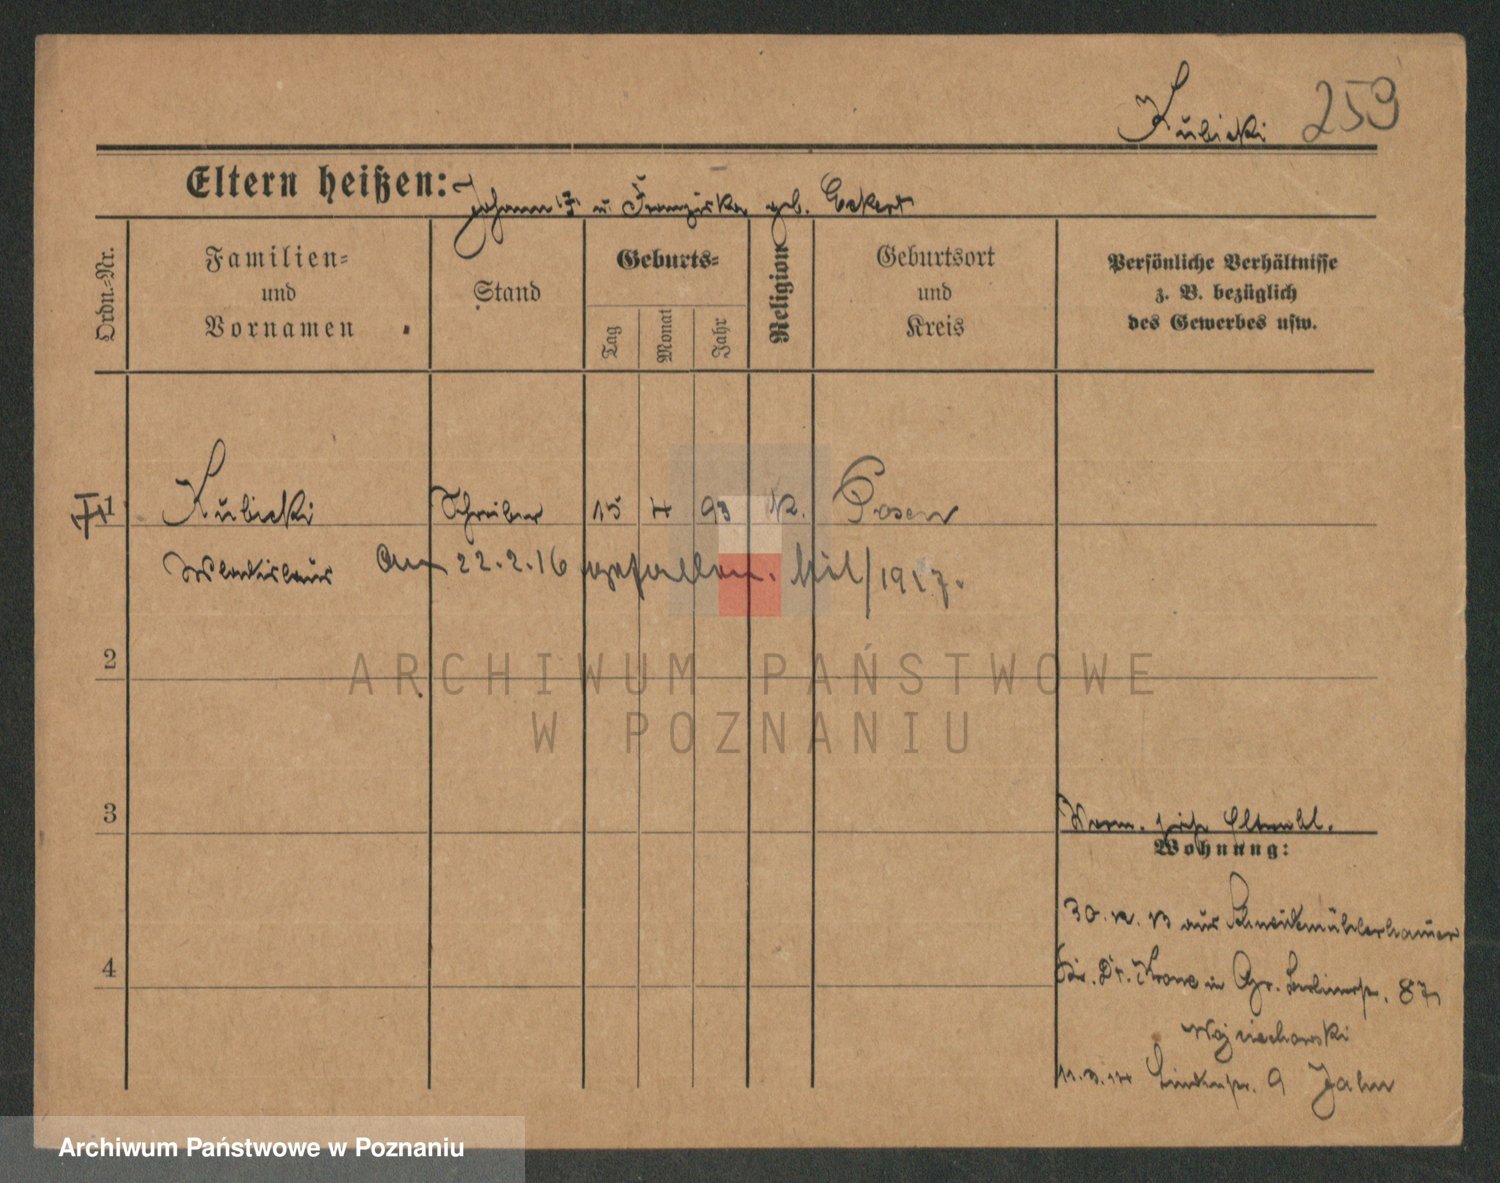 Kubicki 259
Eltern heißen: Johann u. Franziska geb. Eckert
Ordn.-Nr.
Familien-
und
Vornamen
Stand
Geburts-
Tag
Monat
Jahr
Religion
Geburtsort
und
Kreis
Persönliche Verhältnisse
z. B. bezüglich
des Gewerbes usw.
1 Kubicki Schreiber 15 4 93 K. Posen
Wladislaus Am 22.2.16 gefallen. Mil/1917.
2
3
Verm. siehe
Wohnung:
4
30. 12. 13 aus Schneidemühlerhammer
Kr. Dt. Krone in Gr. Berlinerstr. 87
Wojciechowski
9 Jahn
ARCHIWUM PAŃSTWOWE
W POZNANIU
Archiwum Państwowe w Poznaniu